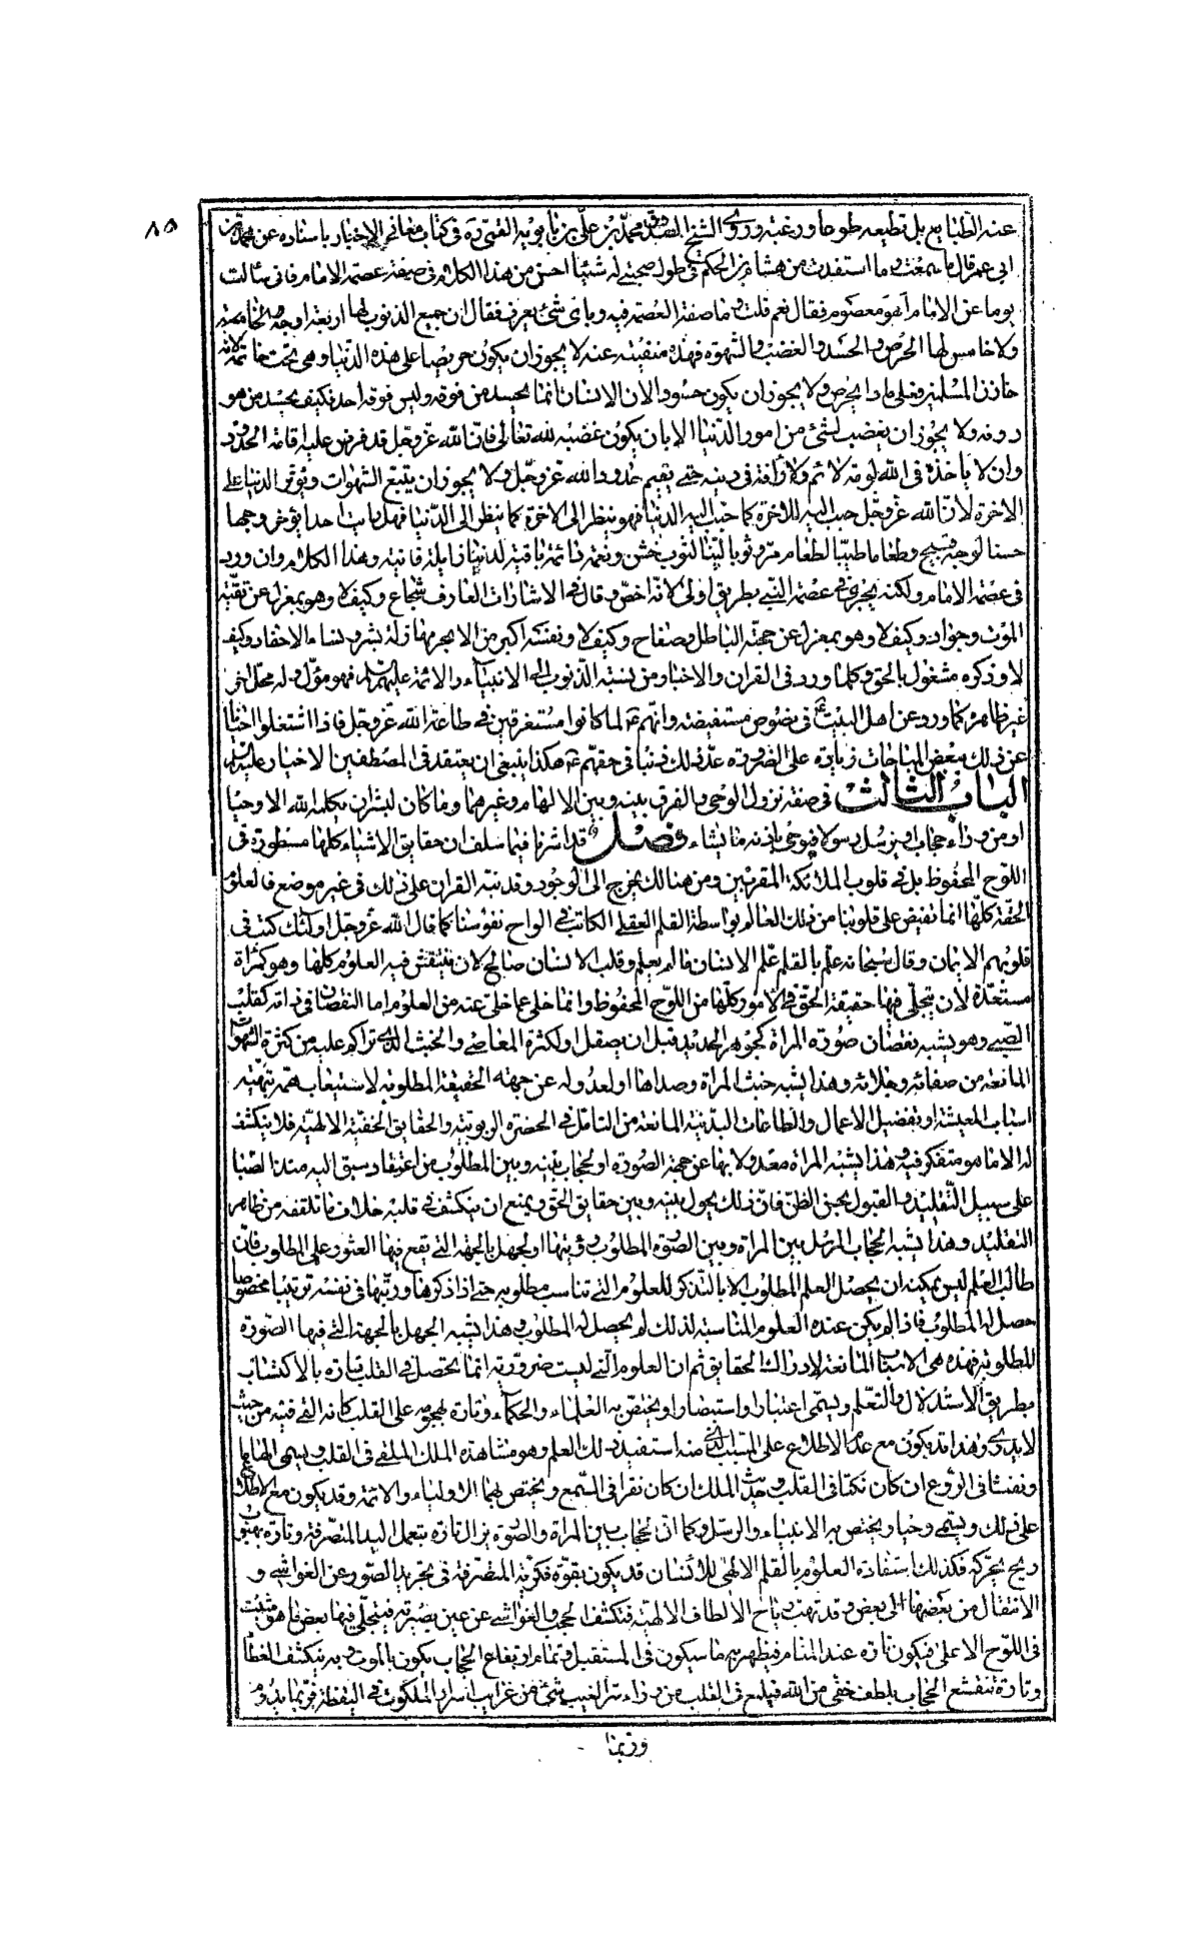 ٨٥
عنه الطبايع بل تطيعه طوعا ورغبة وروى الشيخ الصدوق محمد بن علي بن بابويه القمي ره في كتاب معاني الاخبار باسناده عن محمد بن
ابي عمير قال ما سمعت وما استفدت من هشام بن الحكم في طول صحبتي له شيئا احسن من هذا الكلام في صفة عصمة الامام فاني سالت
يوما عن الامام أهو معصوم فقال نعم قلت وما صفة العصمة فيه وباي شئ يعرف فقال ان جميع الذنوب لها اربعة اوجه
ولا خامس لها الحرص والحسد والغضب والشهوة فهذه منفية عنه لا يجوز ان يكون حريصا على هذه الدنيا وهي تحت خاتمه لانه
خازن المسلمين فعلى ما ذا يحرص ولا يجوز ان يكون حسودا لان الانسان انما يحسد من فوقه وليس فوقه احد فكيف يحسد من هو
دونه ولا يجوز ان يغضب لشئ من امور الدنيا الا بان يكون غضبه لله تعالى فان الله عز وجل قد فرض عليه اقامة الحدود
وان لا ياخذه في الله لومة لائم ولا رأفة في دينه حتى يقيم حدود الله عز وجل ولا يجوز ان يتبع الشهوات ويؤثر الدنيا على
الاخرة لان الله عز وجل حبب اليه الاخرة كما حبب الينا الدنيا فهو ينظر الى الاخرة كما ينظر الى الدنيا فهل رايت احدا يؤثر وجها
حسنا لوجه قبيح وطعاما طيبا لطعام مر وثوبا لينا لثوب خشن ونعمة دائمة باقية لدنيا زايلة فانية وهذا الكلام وان ورد
في عصمة الامام ولكنه يجري في عصمة النبي بطريق اولى لانه اخص وقال في الاشارات العارف شجاع وكيف لا وهو بمعزل عن تقية
الموت وجواد وكيف لا وهو بمعزل عن محبة الباطل وصفاح وكيف لا ونفسه اكبر من ان يجرمها زلة بشر ونساء الاحقاد وكيف
لا وذكره مشغول بالحق وكلما ورد في القران والاخبار من نسبة الذنوب الى الانبياء والائمة عليهم السلم فهو مؤل وله محمل اخر
غير ظاهره كما ورد عن اهل البيت ع في نصوص مستفيضة وانهم ع لما كانوا مستغرقين في طاعة الله عز وجل فاذا اشتغلوا احيانا
عن ذلك ببعض المباحات زيادة على الضرورة عد ذلك ذنبا في حقهم ع هكذا ينبغي ان يعتقد في المصطفين الاخيار عليهم السلم
الباب الثالث في صفة نزول الوحي والفرق بينه وبين الالهام وغيرهما وما كان لبشر ان يكلمه الله الا وحيا
او من وراء حجاب او يرسل رسولا فيوحي باذنه ما يشاء فصل قد اشرنا فيما سلف ان حقايق الاشياء كلها مسطورة في
اللوح المحفوظ بل في قلوب الملائكة المقربين ومن هنالك يخرج الى الوجود وقد نبه القران على ذلك في غير موضع فالعلوم
الحقة كلها انما تفيض على قلوبنا من ذلك العالم بواسطة القلم العقلي الكاتب في الواح نفوسنا كما قال الله عز وجل اولئك كتب في
قلوبهم الايمان وقال سبحانه علم بالقلم علم الانسان ما لم يعلم وقلب الانسان صالح لان ينتقش فيه العلوم كلها وهو كمرآة
مستعدة لان يتجلى فيها حقيقة الحق في الامور كلها من اللوح المحفوظ وانما خلي عما خلي عنه من العلوم اما النقصان في ذاته كقلب
الصبي وهو يشبه نقصان صورة المراة كجوهر الحديد قبل ان يصقل او لكثرة المعاصي والخبث الذي تراكم عليه من كثرة الشهوات
المانعة من صفائه وجلائه وهذا يشبه خبث المراة وصداها او لعدوله عن جهة الحقيقة المطلوبة لاستيعاب همه بتهيئة
اسباب المعيشة او تفصيل الاعمال والطاعات البدنية المانعة من التامل في الحضرة الربوبية والحقايق الخفية الالهية فلا ينكشف
له الا ما هو متفكر فيه وهذا يشبه المراة معدولا بها عن جهة الصورة او لحجاب بينه وبين المطلوب من اعتقاد سبق اليه منذ الصبا
على سبيل التقليد والقبول بحسن الظن فان ذلك يحول بينه وبين حقايق الحق ويمنع ان ينكشف في قلبه خلاف ما تلقفه من ظاهر
التقليد وهذا يشبه الحجاب المرسل بين المراة وبين الصورة المطلوب رؤيتها او لجهل بالجهة التي تقع فيها العثور على المطلوب فان
طالب العلم ليس يمكنه ان يحصل العلم المطلوب الا بالتذكر للعلوم التي تناسب مطلوبه حتى اذا ذكرها ورتبها في نفسه ترتيبا مخصوصا
حصل له المطلوب فاذا لم يكن عنده العلوم المناسبة لذلك لم يحصل له المطلوب وهذا يشبه الجهل بالجهة التي فيها الصورة
المطلوبة فهذه هي الاسباب المانعة لادراك الحقايق ثم ان العلوم التي ليست ضرورية انما تحصل في القلب تارة بالاكتساب
بطريق الاستدلال والتعلم ويسمى اعتبارا واستبصارا ويختص به العلماء والحكماء وتارة بهجومه على القلب كانه القي فيه من حيث
لا يدري وهذا قد يكون مع عدم الاطلاع على السبب الذي منه استفيد ذلك العلم وهو مشاهدة الملك الملقي في القلب ويسمى الهاما
ونفثا في الروع ان كان نكتا في القلب وحديث الملك ان كان نقرا في السمع ويختص بهما الاولياء والائمة وقد يكون مع الاطلاع
على ذلك ويسمى وحيا ويختص به الانبياء والرسل وكما ان الحجاب بين المراة والصورة يزال تارة بتعمل اليد المتصرفة وتارة بهبوب
ريح يحركه فكذلك استفادة العلوم بالقلم الالهي للانسان قد يكون بقوة فكرية المتصرفة في تجريد الصور عن الغواشي و
الانتقال من بعضها الى بعض وقد تهب رياح الالطاف الالهية فتكشف الحجب والغواشي عن عين بصيرته فيتجلى فيها بعض ما هو مثبت
في اللوح الاعلى فيكون تارة عند المنام فيظهر به ما سيكون في المستقبل وتمام ارتفاع الحجاب يكون بالموت وبه ينكشف الغطا
وتارة تنقشع الحجاب بلطف خفي من الله فيلمع في القلب من وراء ستر الغيب شئ من غرايب اسرار الملكوت في اليقظة فربما يدوم
وربما